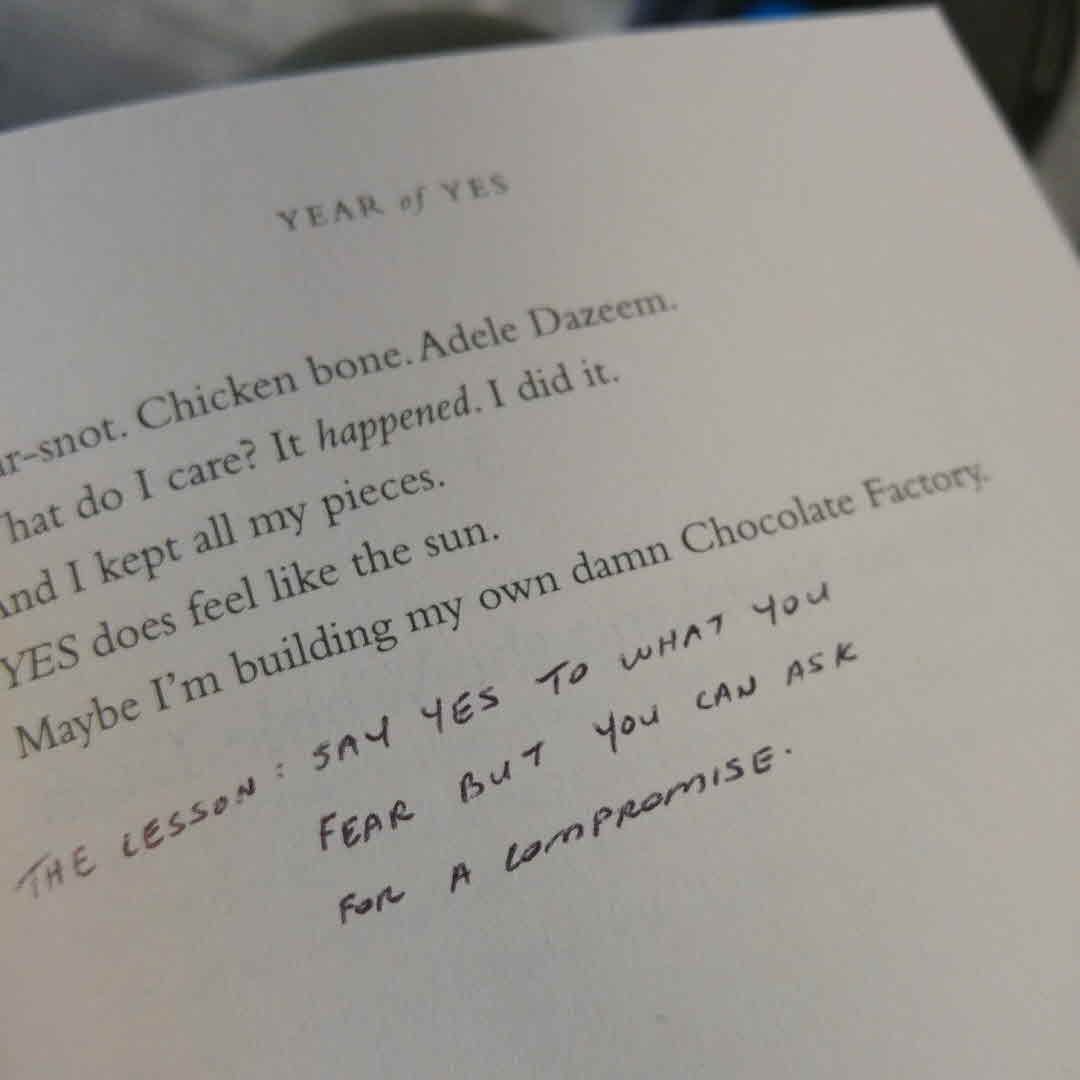 YEAR of YES
ar-snot. Chicken bone. Adele Dazeem.
hat do I care? It happened. I did it.
And I kept all my pieces.
YES does feel like the sun.
Maybe I'm building my own damn Chocolate Factory.
THE LESSON: SAY YES TO WHAT YOU
FEAR BUT YOU CAN ASK
FOR A COMPROMISE.